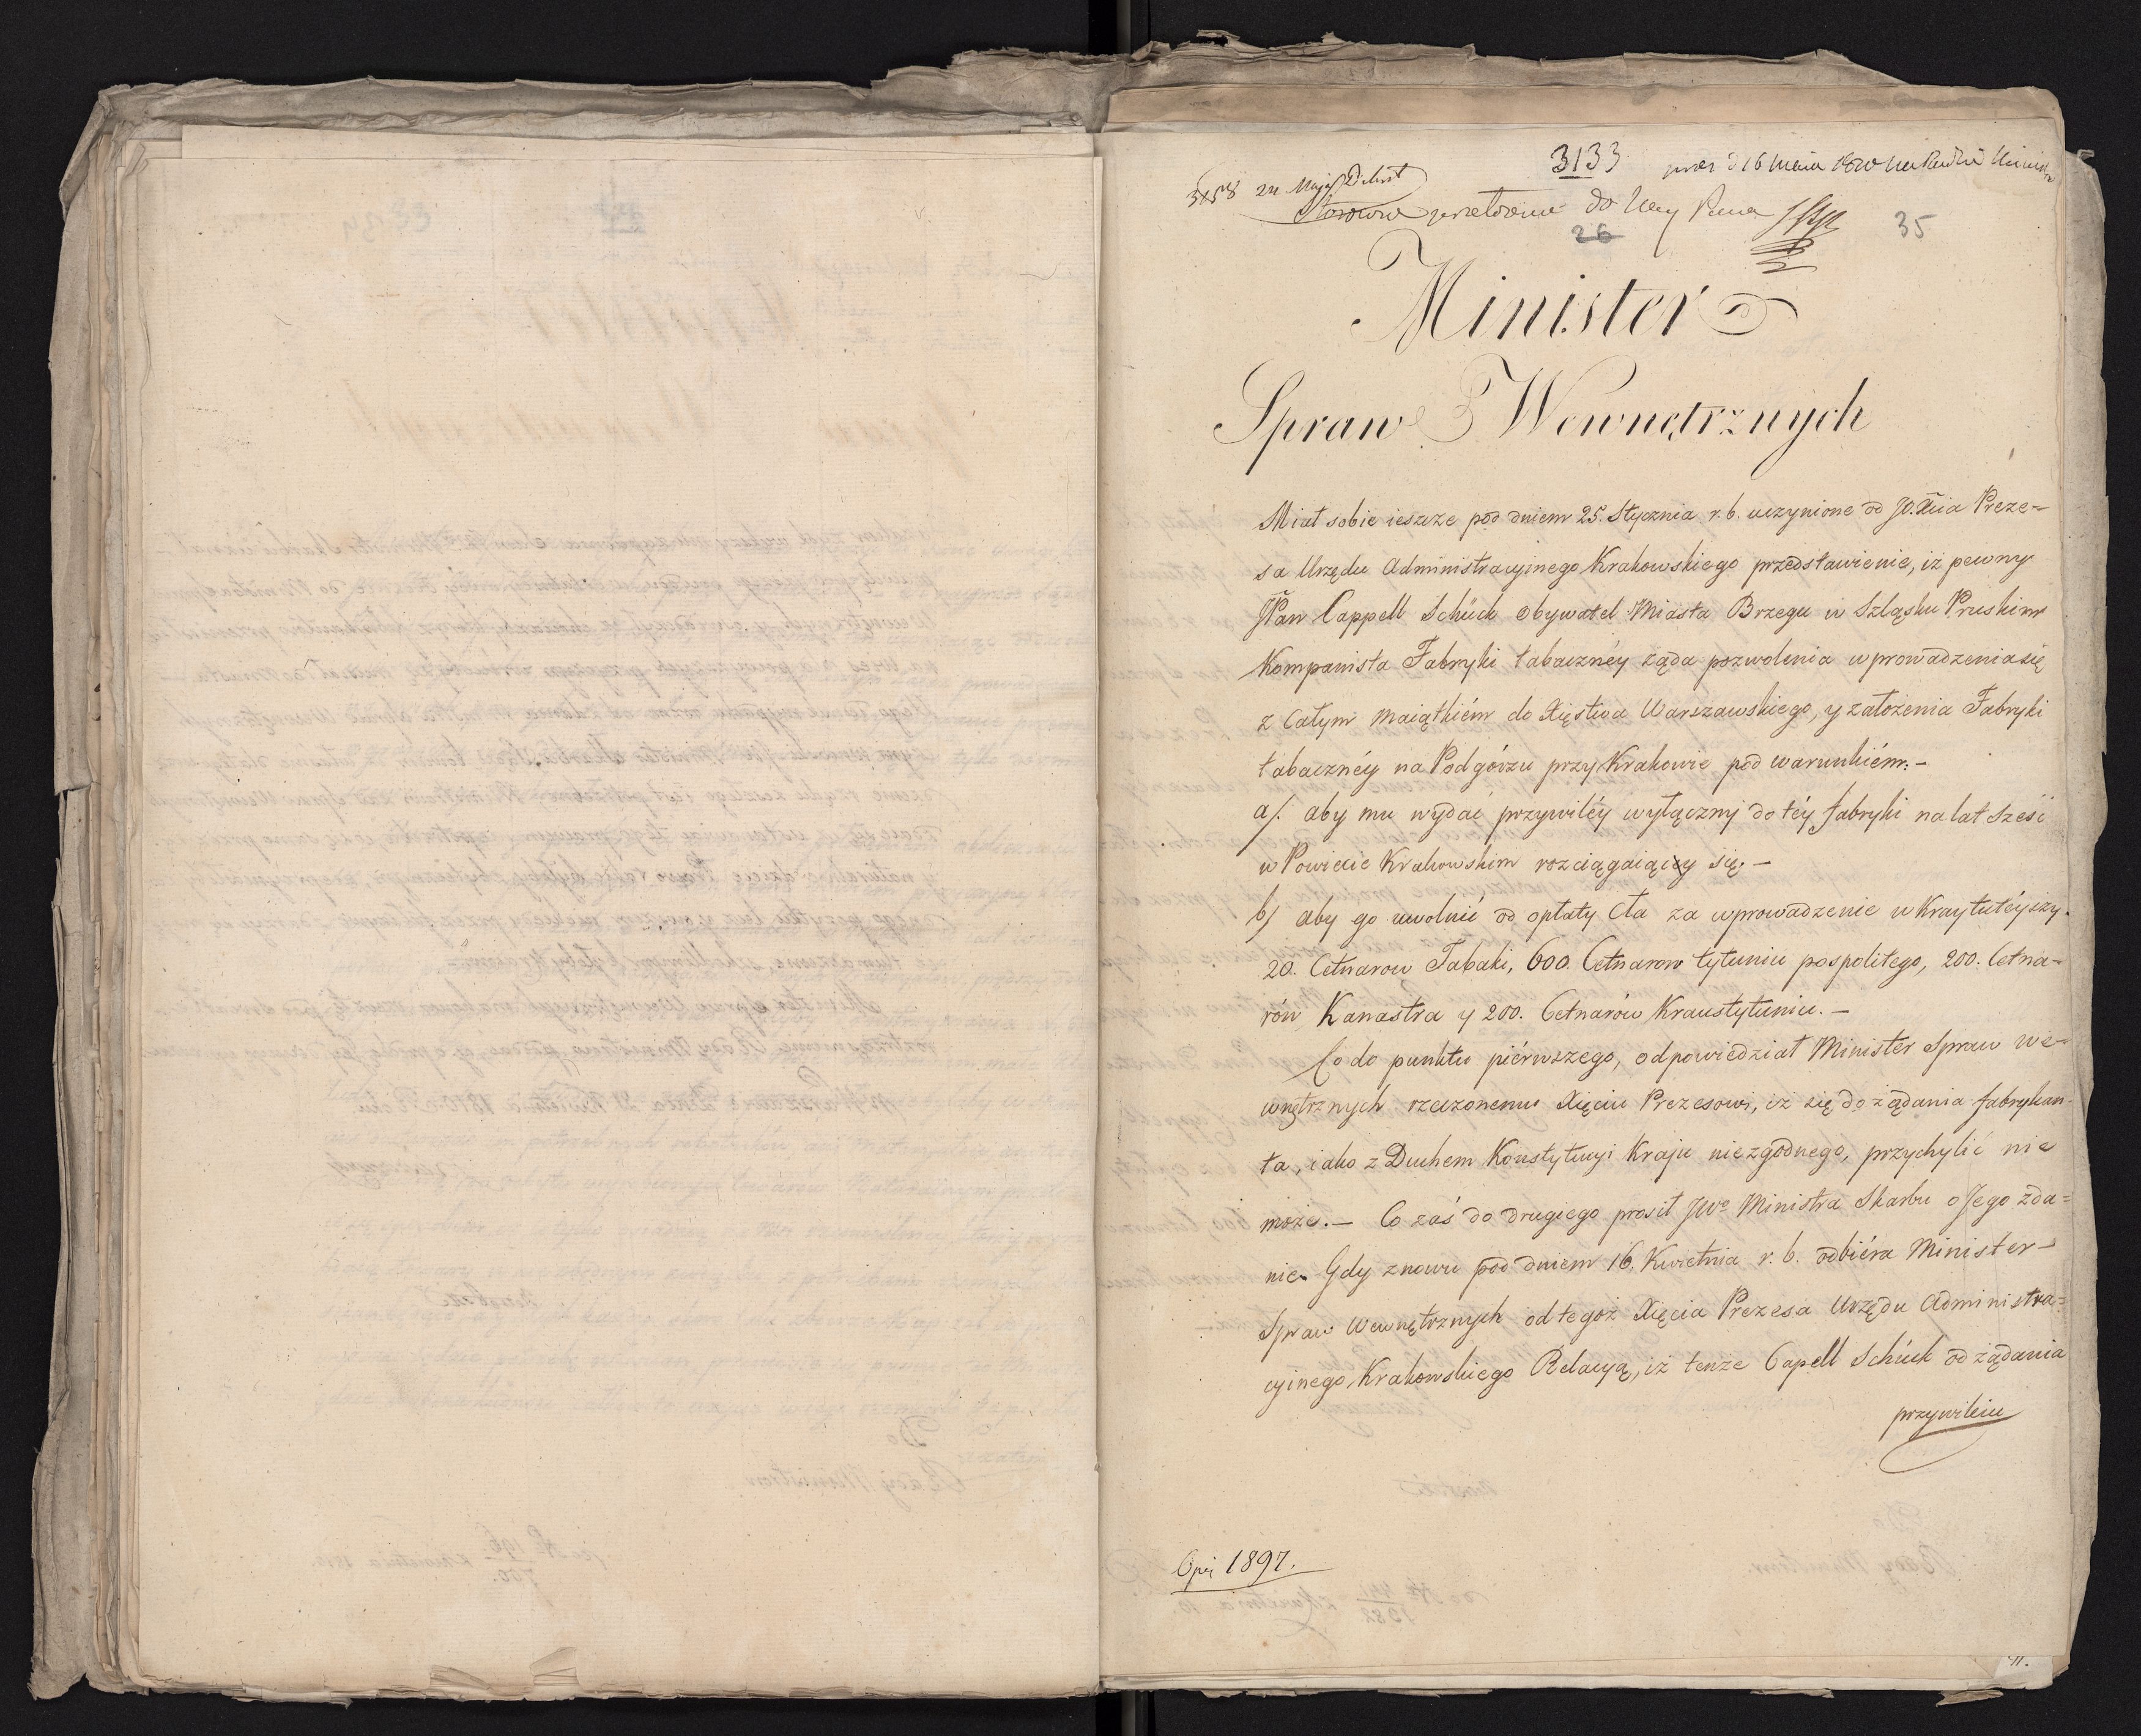 3133
3158 24 Maja
do
26
35
Minister
Spraw Wewnętrznych
Miał sobie ieszcze pod dniem 25. Stycznia r. b. uczynione od JO. Xcia Preze-
sa Urzędu Administracyinego Krakowskiego przedstawienie, iż pewny
JPan Cappell Schück Obywatel Miasta Brzegu w Szląsku Pruskim
Kompanista Fabryki tabaczney żąda pozwolenia wprowadzenia się
z całym maiątkiém do Xięstwa Warszawskiego, y założenia Fabryki
tabacznéy na Podgórzu przy Krakowie pod warunkiém: -
a/. aby mu wydać przywiléy wyłączny do téy fabryki na lat sześć
w Powiecie Krakowskim rozciągaiący się. -
b/ aby go uwolnić od opłaty Cła za wprowadzenie w Kray tutéyszy.
20. Cetnarow Tabaki, 600. Cetnarow tytuniu pospolitego, 200. Cetna=
rów Kanastra y 200. Cetnarów Kraustytuniu. -
Co do punktu piérwszego, odpowiedział Minister Spraw We=
wnętrznych rzeczonemu Xięciu Prezesowi, iż się do żądania fabrykan-
ta, iako z Duchem Konstytucyi Kraju niezgodnego, przychylić nie
może. - Co zaś do drugiego prosił JWo Ministra Skarbu o Jego zda=
nie. Gdy znowu pod dniem 16. Kwietnia r. b. odbiéra Minister
Spraw Wewnętrznych od tegoż Xięcia Prezesa Urzędu Administra=
cyinego Krakowskiego Relacyą, iż tenże Capell Schück od żądania
przywileiu
1897.